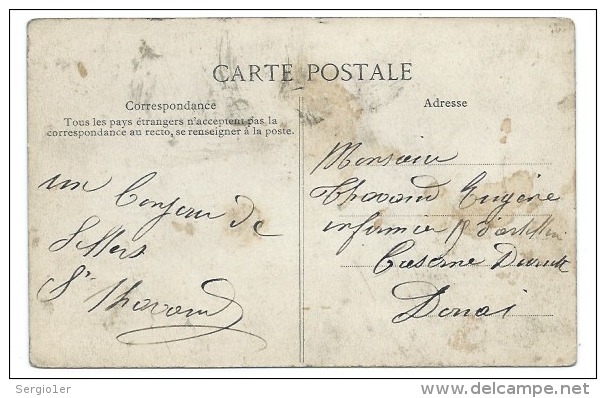 CARTE POSTALE
Correspondance
Tous les pays étrangers n'acceptent pas la
correspondance au recto, se renseigner à la poste.
un Bonjour de
Adresse
Monsieur
Thovard Eugène
infirmier d'artillerie
Caserne
Douai
Sergio1er
delcampe.net